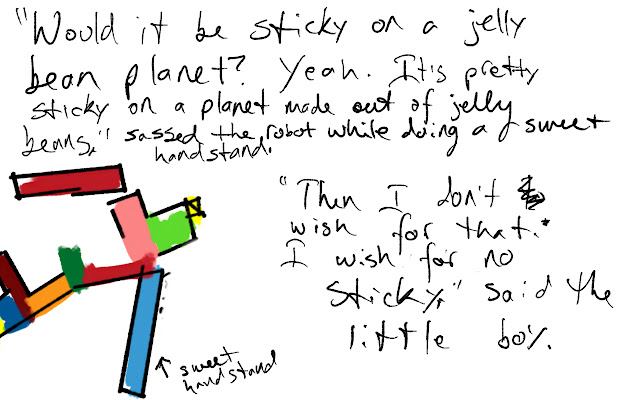 "Would it be sticky on a jelly
bean planet? Yeah. It's pretty
sticky on a planet made out of jelly
beans," sassed the robot while doing a sweet
handstand.
"Then I don't
wish for that.
I wish for no
sticky," said the
little boy.
↑ sweet
handstand